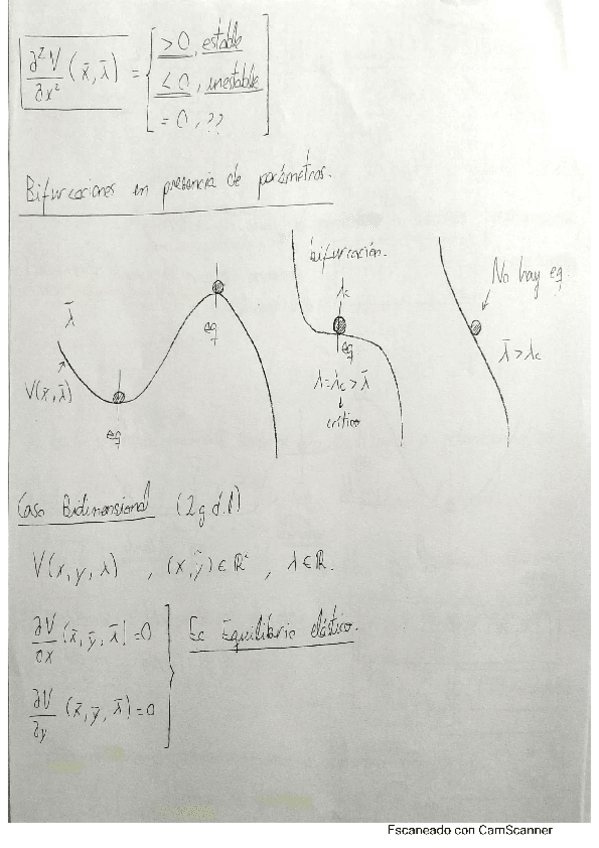 ∂²V/∂x² (x̄, λ̄) = { > 0, estable
< 0, inestable
= 0, ??
Bifurcaciones en presencia de parámetros.
λ̄
V(x̄, λ̄)
eq
eq
bifurcación.
λc
eq
λ = λc > λ̄
crítico
No hay eq.
λ̄ > λc
Caso Bidimensional (2 g.d.l)
V(x, y, λ) , (x, y) ∈ ℝ² , λ ∈ ℝ.
∂V/∂x (x̄, ȳ, λ̄) = 0
Ec Equilibrio elástico.
∂V/∂y (x̄, ȳ, λ̄) = 0
Escaneado con CamScanner